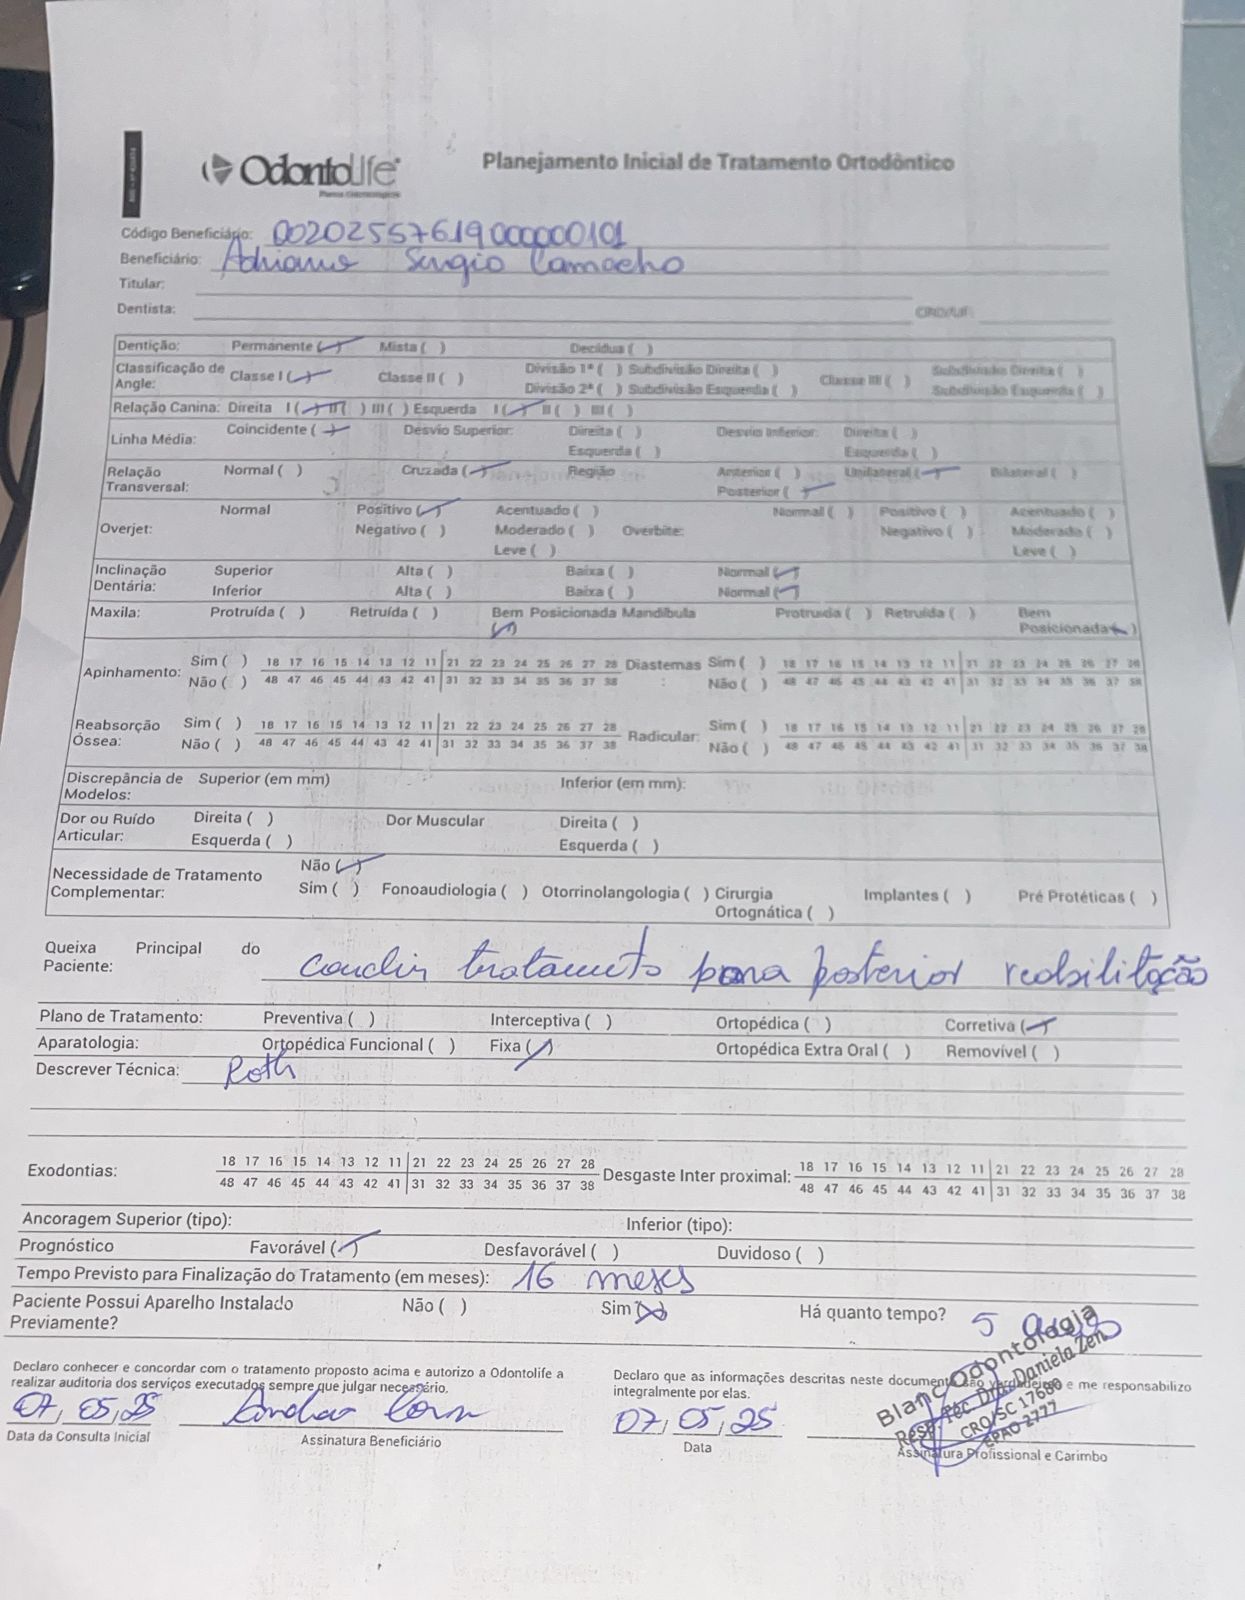 OdontoLife
Planos Odontológicos
Planejamento Inicial de Tratamento Ortodôntico
Código Beneficiário: 00202557619000000101
Beneficiário: Adriano Sergio Camacho
Titular:
Dentista: CRO/UF:
Dentição: Permanente ( ) Mista ( ) Decídua ( )
Classificação de Angle: Classe I ( ) Classe II ( ) Divisão 1ª ( ) Subdivisão Direita ( ) Classe III ( ) Subdivisão Direita ( )
Divisão 2ª ( ) Subdivisão Esquerda ( ) Subdivisão Esquerda ( )
Relação Canina: Direita I ( ) II ( ) III ( ) Esquerda I ( ) II ( ) III ( )
Linha Média: Coincidente ( ) Desvio Superior: Direita ( ) Desvio Inferior: Direita ( )
Esquerda ( ) Esquerda ( )
Relação Transversal: Normal ( ) Cruzada ( ) Região Anterior ( ) Unilateral ( ) Bilateral ( )
Posterior ( )
Overjet: Normal Positivo ( ) Acentuado ( ) Overbite: Normal ( ) Positivo ( ) Acentuado ( )
Negativo ( ) Moderado ( ) Negativo ( ) Moderado ( )
Leve ( ) Leve ( )
Inclinação Dentária: Superior Alta ( ) Baixa ( ) Normal ( )
Inferior Alta ( ) Baixa ( ) Normal ( )
Maxila: Protruída ( ) Retruída ( ) Bem Posicionada ( ) Mandíbula Protruída ( ) Retruída ( ) Bem Posicionada ( )
Apinhamento: Sim ( ) 18 17 16 15 14 13 12 11 21 22 23 24 25 26 27 28 Diastemas : Sim ( ) 18 17 16 15 14 13 12 11 21 22 23 24 25 26 27 28
Não ( ) 48 47 46 45 44 43 42 41 31 32 33 34 35 36 37 38 Não ( ) 48 47 46 45 44 43 42 41 31 32 33 34 35 36 37 38
Reabsorção Óssea: Sim ( ) 18 17 16 15 14 13 12 11 21 22 23 24 25 26 27 28 Radicular: Sim ( ) 18 17 16 15 14 13 12 11 21 22 23 24 25 26 27 28
Não ( ) 48 47 46 45 44 43 42 41 31 32 33 34 35 36 37 38 Não ( ) 48 47 46 45 44 43 42 41 31 32 33 34 35 36 37 38
Discrepância de Modelos: Superior (em mm) Inferior (em mm):
Dor ou Ruído Articular: Direita ( ) Dor Muscular Direita ( )
Esquerda ( ) Esquerda ( )
Necessidade de Tratamento Complementar: Não ( )
Sim ( ) Fonoaudiologia ( ) Otorrinolangologia ( ) Cirurgia Ortognática ( ) Implantes ( ) Pré Protéticas ( )
Queixa Principal do Paciente: tratamento para posterior reabilitação
Plano de Tratamento: Preventiva ( ) Interceptiva ( ) Ortopédica ( ) Corretiva ( )
Aparatologia: Ortopédica Funcional ( ) Fixa ( ) Ortopédica Extra Oral ( ) Removível ( )
Descrever Técnica: Roth
Exodontias: 18 17 16 15 14 13 12 11 21 22 23 24 25 26 27 28 Desgaste Inter proximal: 18 17 16 15 14 13 12 11 21 22 23 24 25 26 27 28
48 47 46 45 44 43 42 41 31 32 33 34 35 36 37 38 48 47 46 45 44 43 42 41 31 32 33 34 35 36 37 38
Ancoragem Superior (tipo): Inferior (tipo):
Prognóstico Favorável ( ) Desfavorável ( ) Duvidoso ( )
Tempo Previsto para Finalização do Tratamento (em meses): 16 meses
Paciente Possui Aparelho Instalado Previamente? Não ( ) Sim (X) Há quanto tempo? 5 anos
Declaro conhecer e concordar com o tratamento proposto acima e autorizo a Odontolife a
realizar auditoria dos serviços executados sempre que julgar necessário.
Declaro que as informações descritas neste documento são verdadeiras e me responsabilizo
integralmente por elas.
07, 05, 25
Data da Consulta Inicial
Assinatura Beneficiário
07, 05, 25
Data
Blanc Odontologia
Resp. Téc. Dra. Daniela Zen
CRO/SC 17680
EPAO 2777
Assinatura Profissional e Carimbo